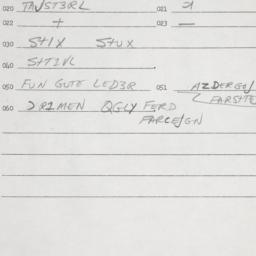 020 TAUST3RL 021 1
022 + 023 —
030 St1X StUX
040 StT1VL
050 FUN GUTE LED3R 051 AZDERGO/
FARSHTE
060 DR1MEN QGLY FERD
FARLE/GN